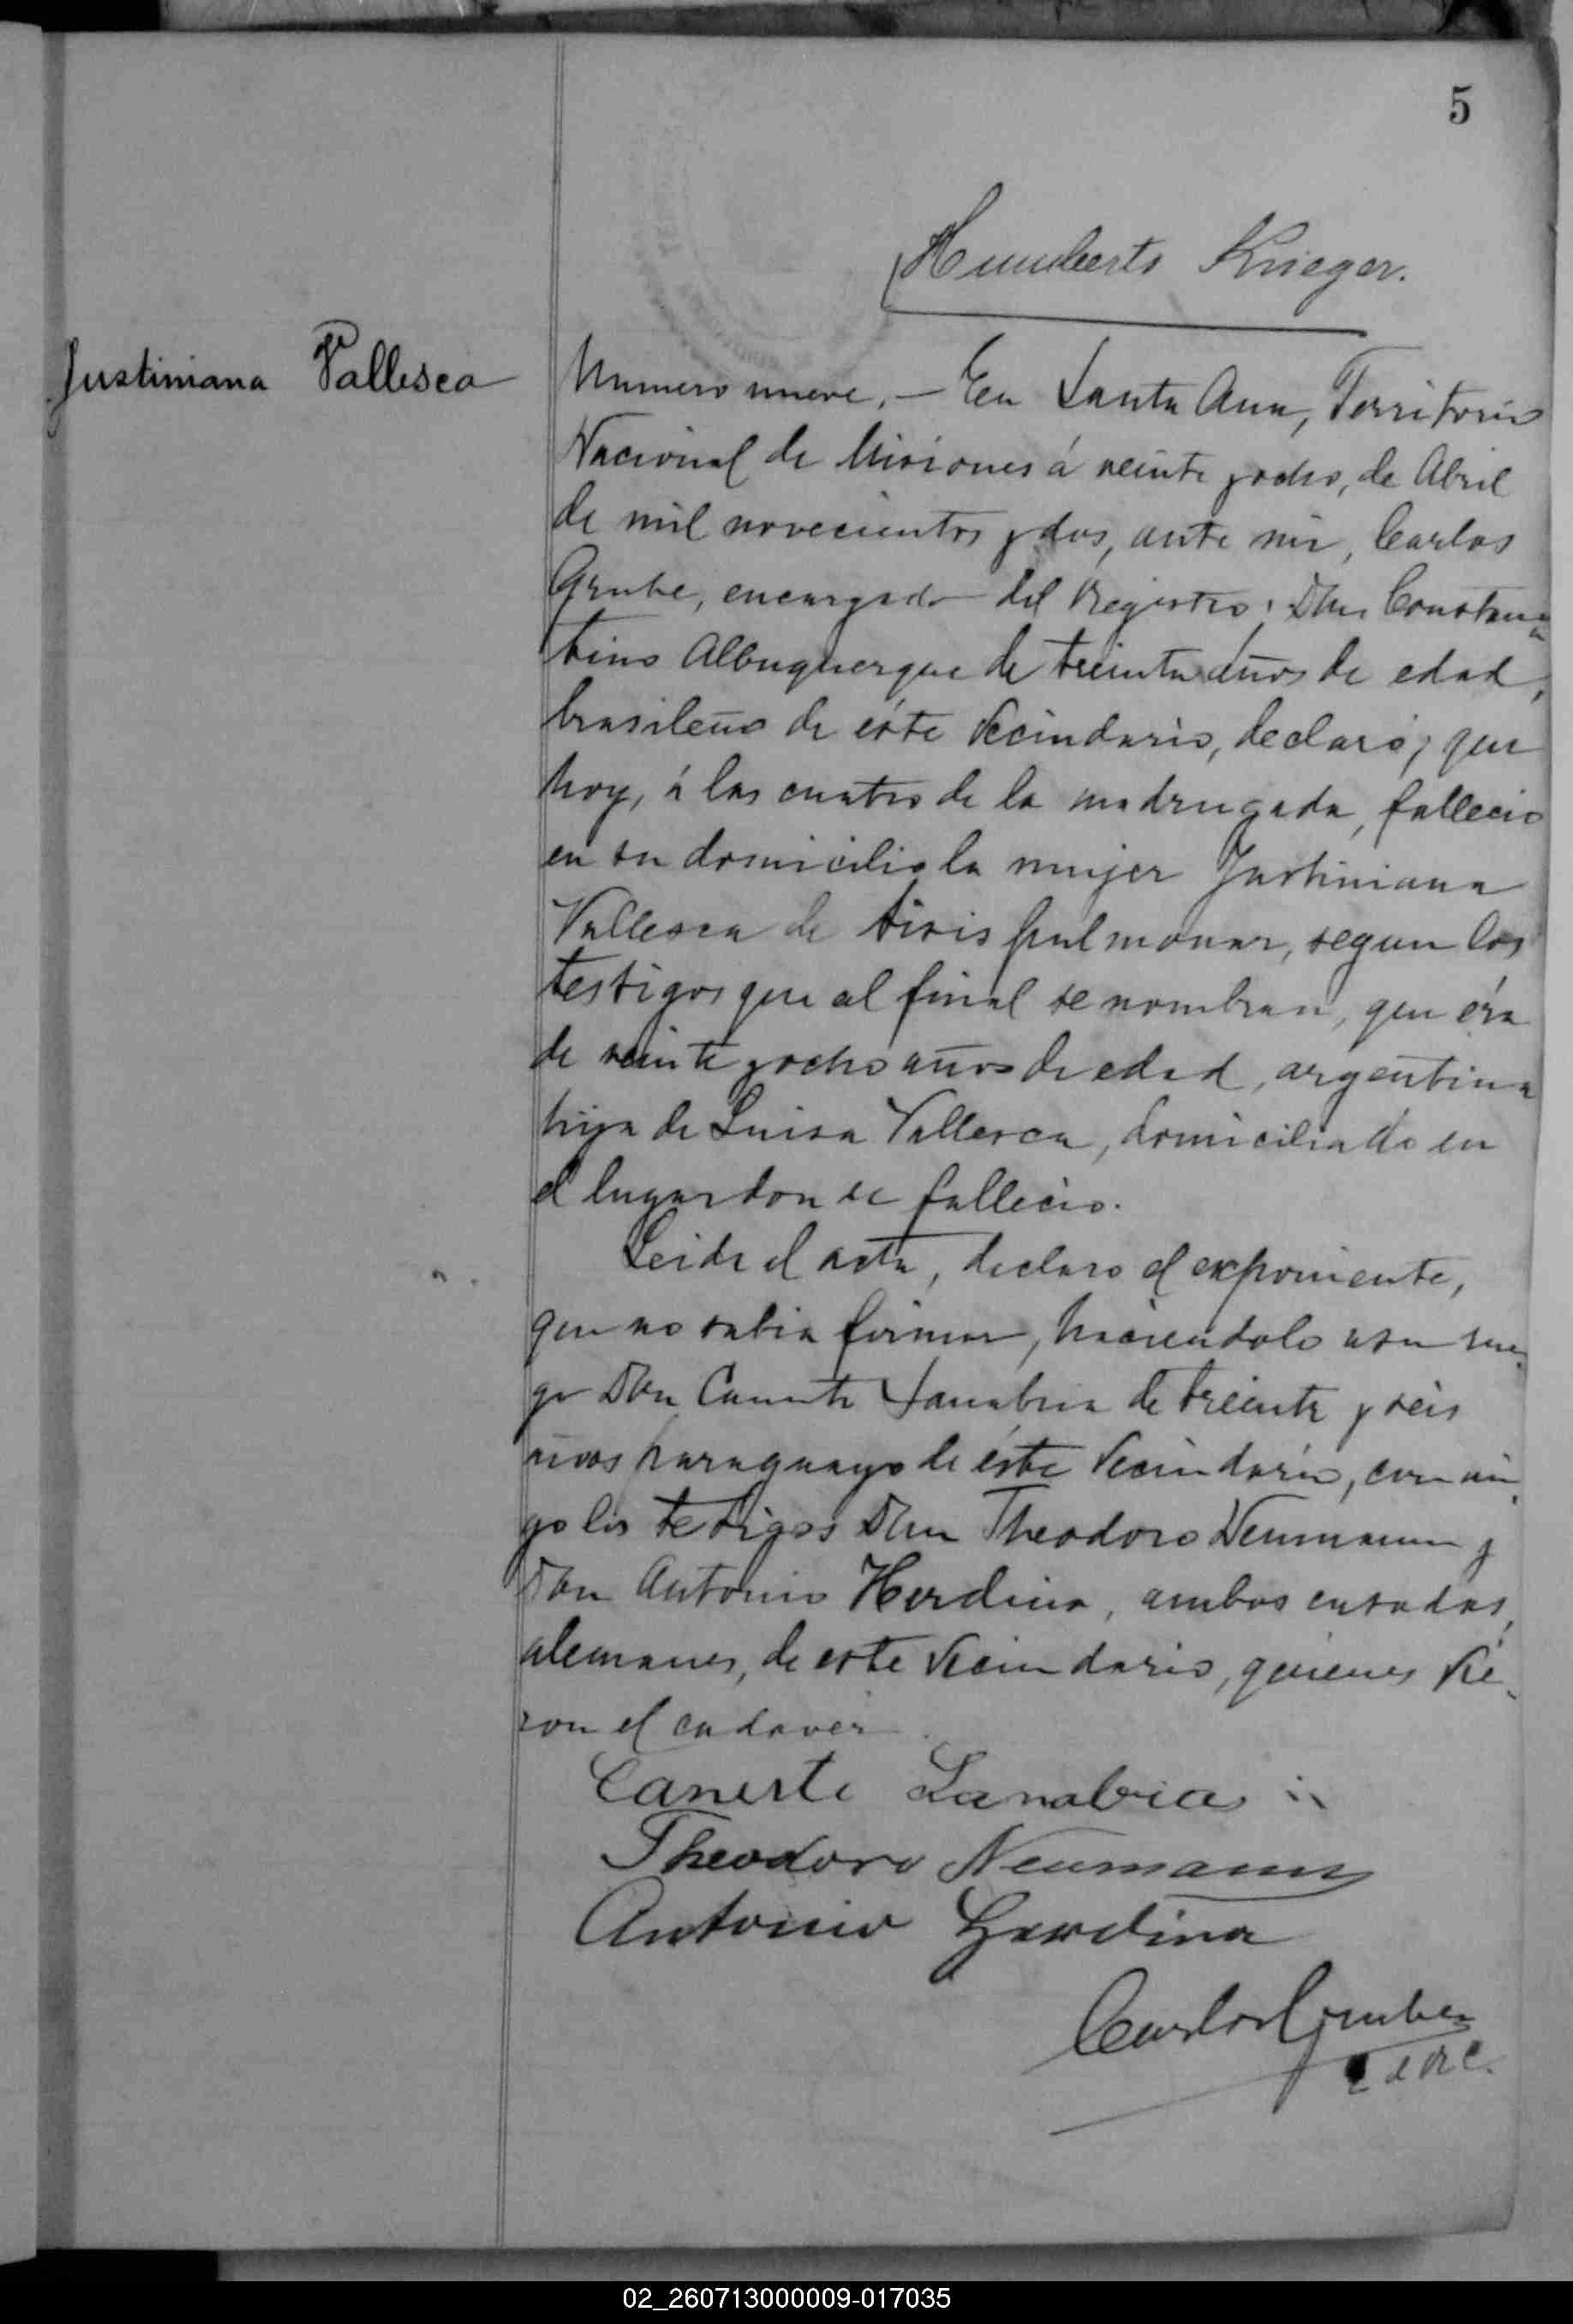 5
Humberto Krieger.
Justiniana Vallesca
Numero nueve. — En Santa Ana, Territorio
Nacional de Misiones á veinte y ocho, de Abril
de mil novecientos y dos, ante mi, Carlos
Grube, encargado del Registro; Don Constan-
tino Albuquerque de treinta años de edad,
brasileño de éste vecindario, declaró; que
hoy, á las cuatro de la madrugada, fallecio
en su domicilio la mujer Justiniana
Vallesca de tisis pulmonar, segun los
testigos que al final se nombran, que éra
de veinte y ocho años de edad, argentina
hija de Luisa Vallesca, domiciliado en
el lugar donde fallecio.
Leida el acta, declaro el exponiente,
que no sabia firmar, haciendolo a su rue-
go Don Canute Sanabria de treinta y seis
años paraguayo de éste vecindario, conmi-
go los testigos Don Theodoro Neumann y
Don Antonio Herdina, ambos casados,
alemanes, de este vecindario, quienes vie-
ron el cadaver
Sanabria
Theodoro Neumann
Antonio Herdina
Carlos Grube
E d R C.
02_260713000009-017035